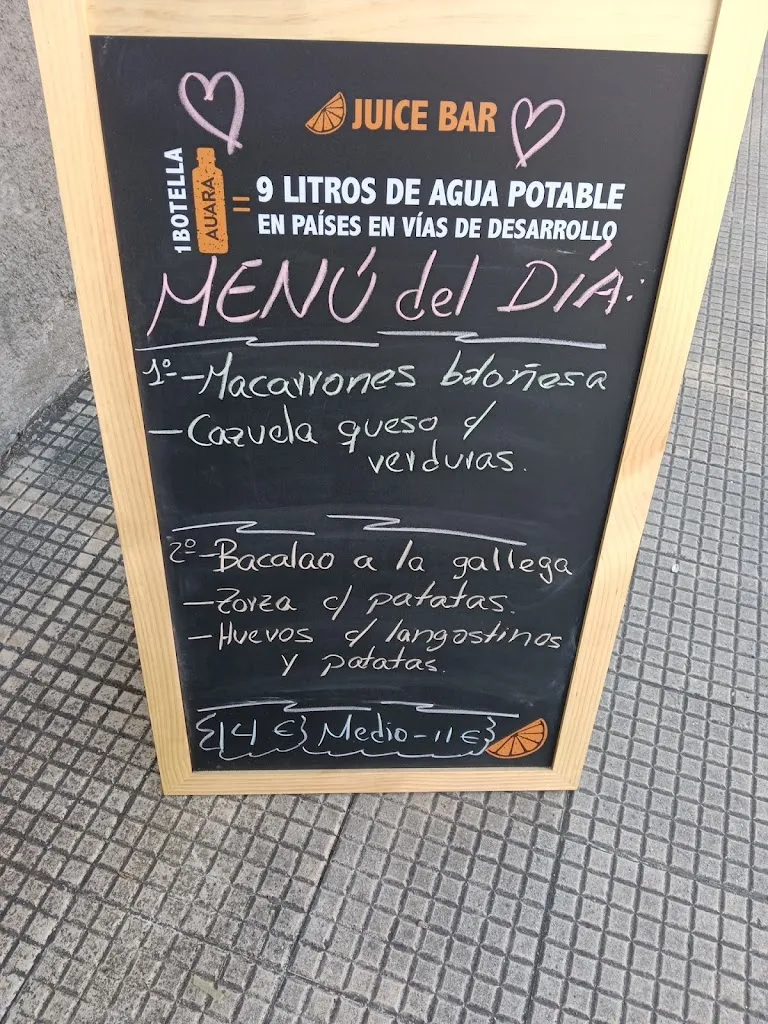 JUICE BAR
1 BOTELLA
AUARA
= 9 LITROS DE AGUA POTABLE
EN PAÍSES EN VÍAS DE DESARROLLO
MENÚ del DÍA:
1º-Macarrones boloñesa
-Cazuela queso c/
verduras.
2º-Bacalao a la gallega
-Zorza c/ patatas.
-Huevos c/ langostinos
y patatas.
{14 €} Medio-11€}